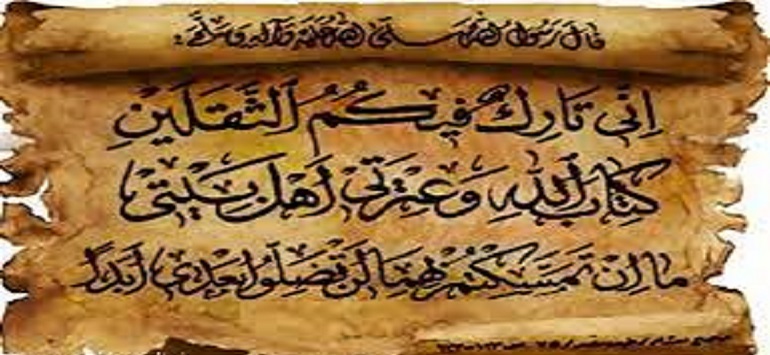 قال رسول الله صلى الله عليه وآله وسلم:
إِنّي تَارِكٌ فيكُمُ الثَّقَلَينِ
كِتَابَ اللهِ وَعِترَتي أَهلَ بَيتي
ما إِن تَمَسَّكتُم بِهِمَا لَن تَضِلّوا بَعدي أَبَدًا